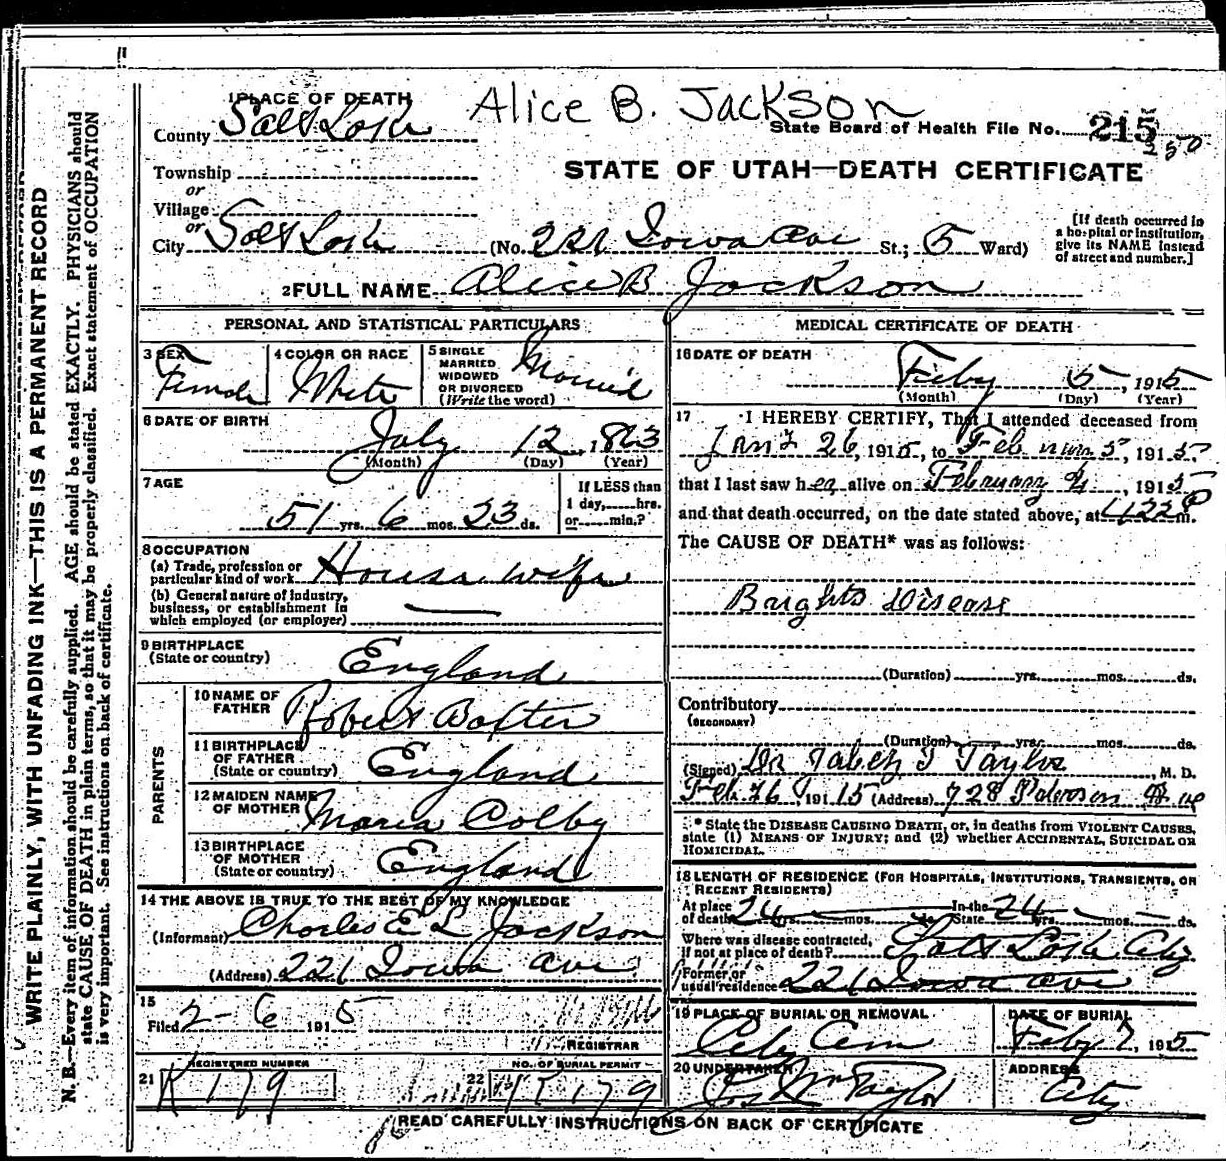 WRITE PLAINLY, WITH UNFADING INK—THIS IS A PERMANENT RECORD
N. B.—Every item of information should be carefully supplied. AGE should be stated EXACTLY. PHYSICIANS should
state CAUSE OF DEATH in plain terms, so that it may be properly classified. Exact statement of OCCUPATION
is very important. See instructions on back of certificate.
Alice B. Jackson
1 PLACE OF DEATH
County Salt Lake
State Board of Health File No. 215
250
STATE OF UTAH—DEATH CERTIFICATE
Township
or
Village
or
City Salt Lake (No. 221 Iowa Ave St.; 5 Ward)
[If death occurred in
a hospital or institution,
give its NAME instead
of street and number.]
2 FULL NAME Alice B Jackson
PERSONAL AND STATISTICAL PARTICULARS
3 SEX
Female
4 COLOR OR RACE
White
5 SINGLE
MARRIED
WIDOWED
OR DIVORCED
(Write the word)
Married
6 DATE OF BIRTH
July 12, 1863
(Month) (Day) (Year)
7 AGE
51 yrs. 6 mos. 23 ds.
If LESS than
1 day, hrs.
or min.?
8 OCCUPATION
(a) Trade, profession or
particular kind of work House wife
(b) General nature of industry,
business, or establishment in
which employed (or employer)
9 BIRTHPLACE
(State or country)
England
PARENTS
10 NAME OF
FATHER
Robert Baxter
11 BIRTHPLACE
OF FATHER
(State or country)
England
12 MAIDEN NAME
OF MOTHER
Maria Colby
13 BIRTHPLACE
OF MOTHER
(State or country)
England
14 THE ABOVE IS TRUE TO THE BEST OF MY KNOWLEDGE
(Informant) Charles E L Jackson
(Address) 221 Iowa Ave
15
Filed 2-6 1915
REGISTRAR
REGISTERED NUMBER
21 K 179
NO. OF BURIAL PERMIT
22 K 179
MEDICAL CERTIFICATE OF DEATH
16 DATE OF DEATH
Feby 5, 1915
(Month) (Day) (Year)
17 I HEREBY CERTIFY, That I attended deceased from
26, 1915, to 5, 1915
that I last saw her alive on February 4, 1915
and that death occurred, on the date stated above, at 4.22 P m.
The CAUSE OF DEATH* was as follows:
Brights Disease
(Duration) yrs. mos. ds.
Contributory
(SECONDARY)
(Duration) yrs. mos. ds.
(Signed) Dr Jabez Taylor, M. D.
1915 (Address) 728
* State the DISEASE CAUSING DEATH, or, in deaths from VIOLENT CAUSES,
state (1) MEANS OF INJURY; and (2) whether ACCIDENTAL, SUICIDAL OR
HOMICIDAL.
18 LENGTH OF RESIDENCE (FOR HOSPITALS, INSTITUTIONS, TRANSIENTS, OR
RECENT RESIDENTS)
At place
of death 24 yrs. mos. ds.
In the
State 24 yrs. mos. ds.
Where was disease contracted,
if not at place of death? Salt Lake City
Former or
usual residence 221 Iowa Ave
19 PLACE OF BURIAL OR REMOVAL
City Cem
DATE OF BURIAL
Feby 7, 1915
20 UNDERTAKER
Jos Wm Taylor
ADDRESS
City
READ CAREFULLY INSTRUCTIONS ON BACK OF CERTIFICATE